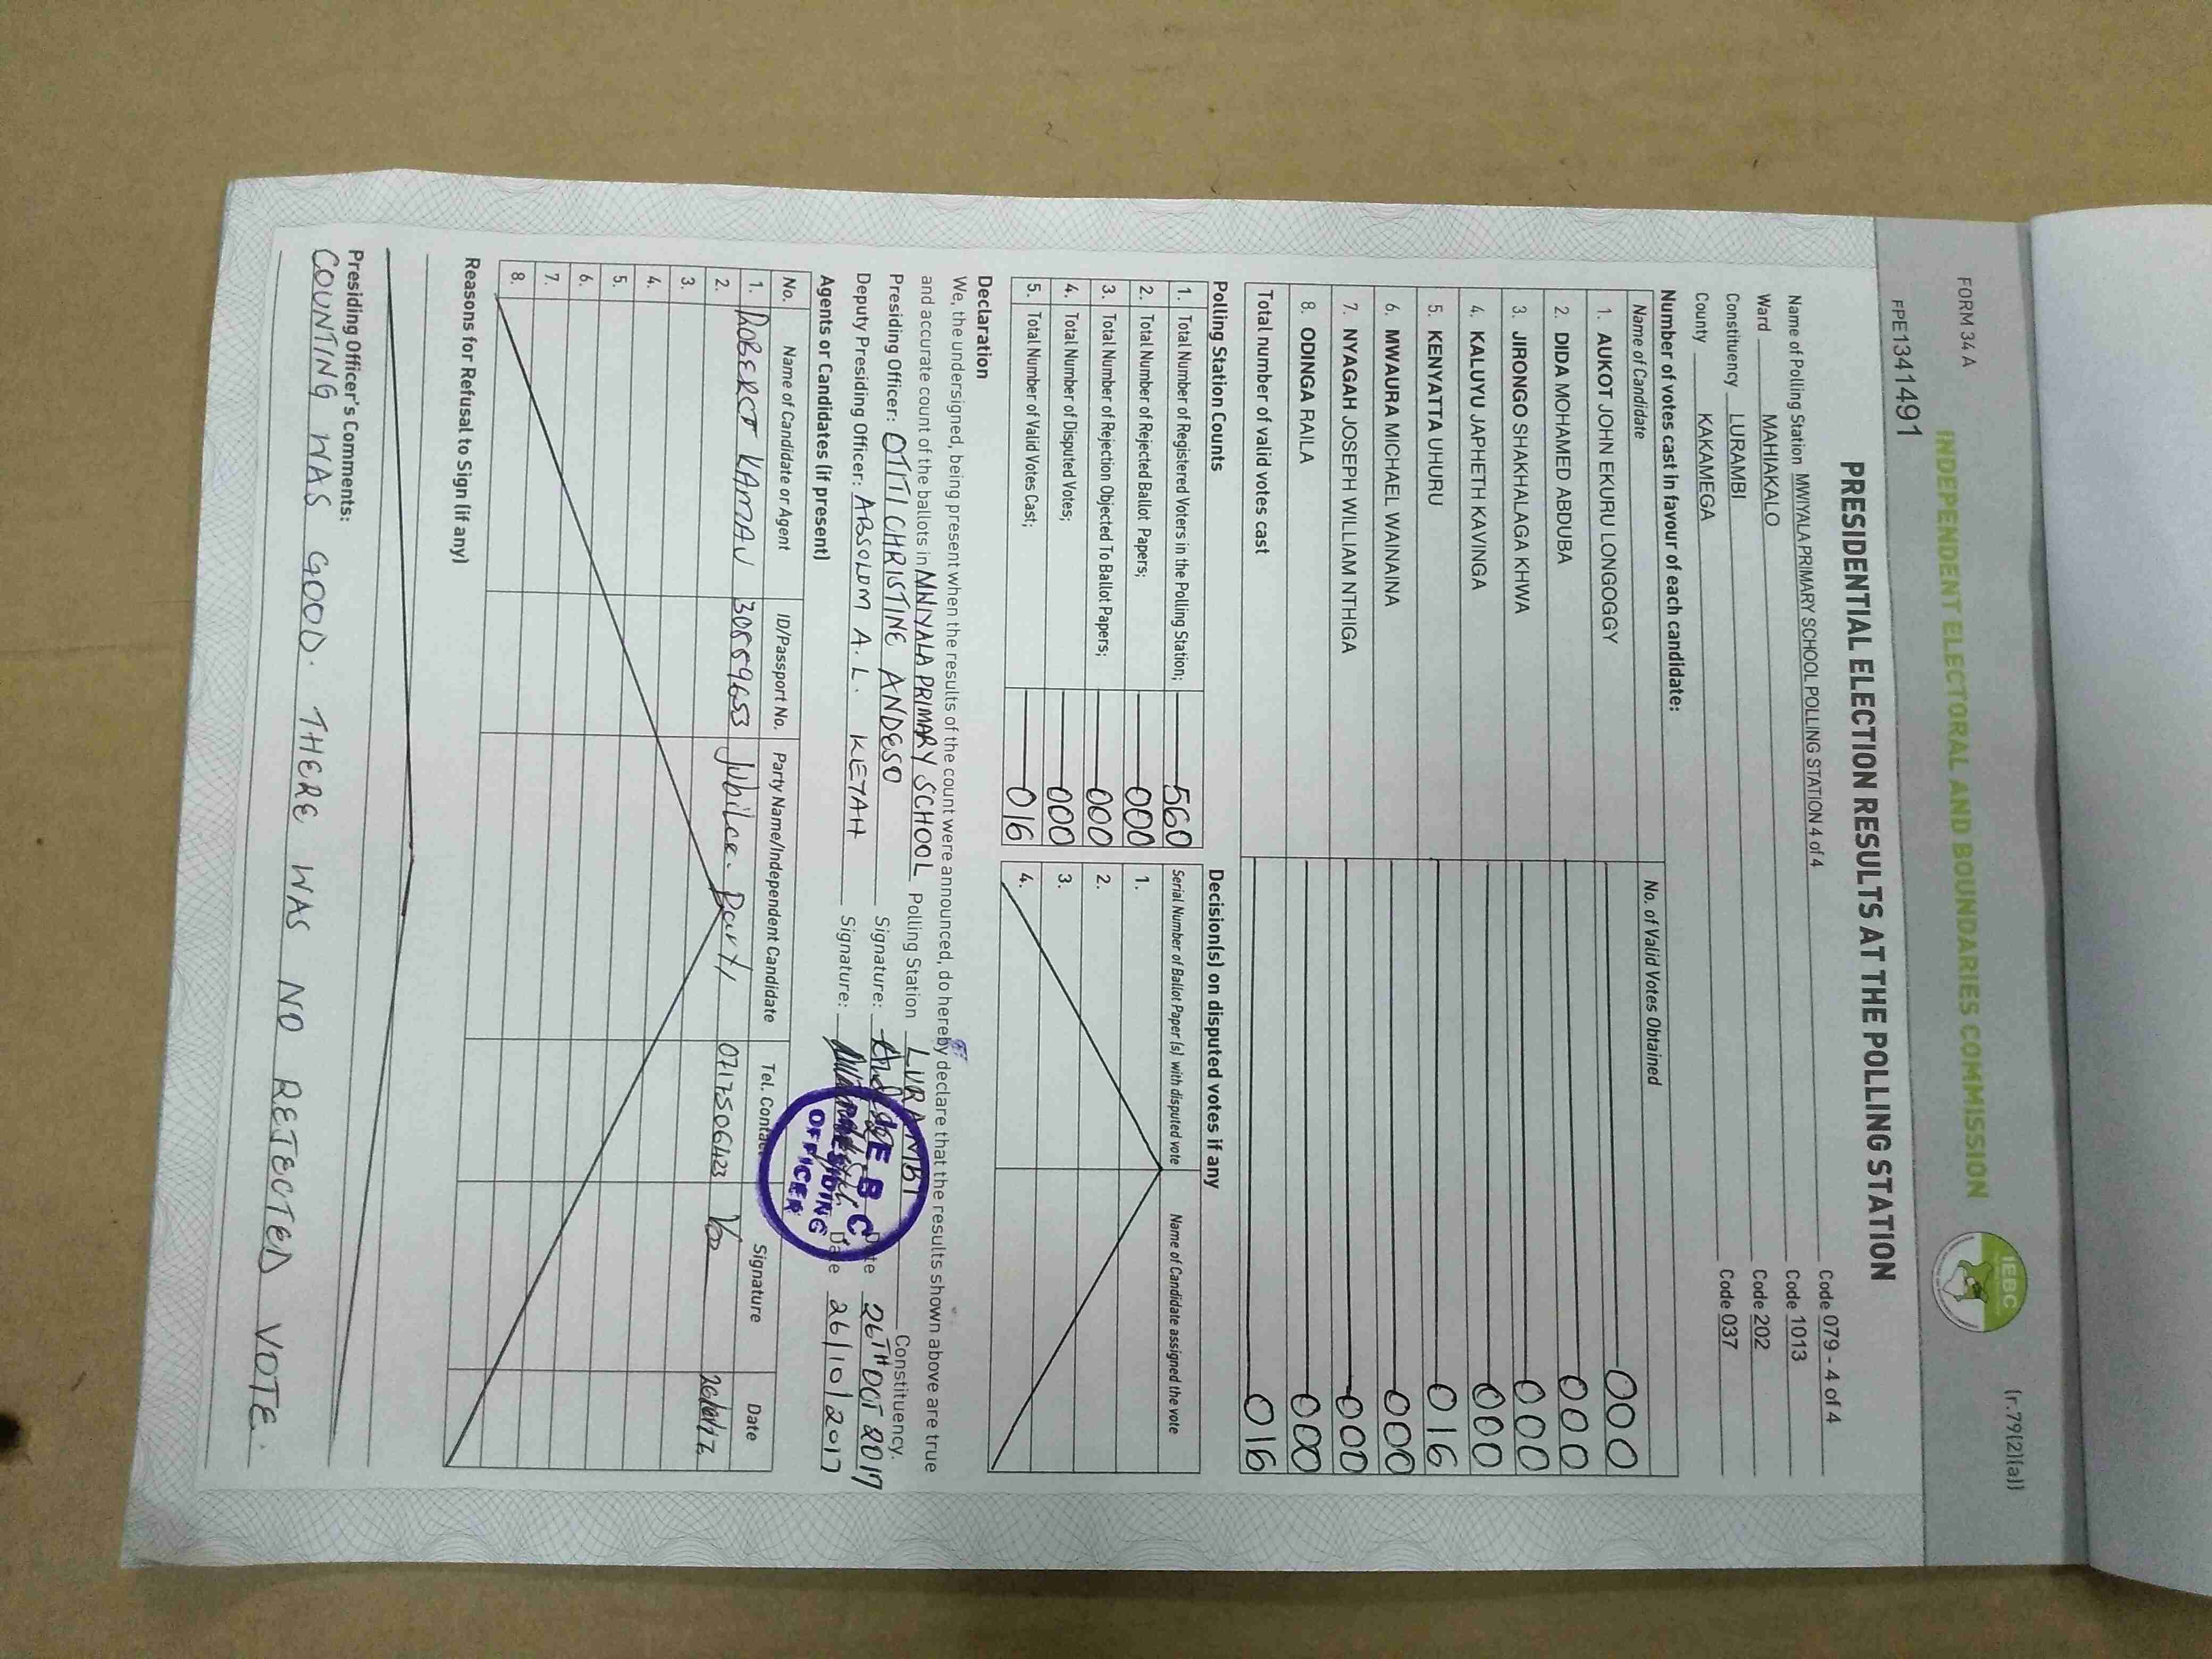 FORM 34 A
(r.79(2)(a))
INDEPENDENT ELECTORAL AND BOUNDARIES COMMISSION
IEBC
FPE1341491
PRESIDENTIAL ELECTION RESULTS AT THE POLLING STATION
Name of Polling Station MWIYALA PRIMARY SCHOOL POLLING STATION 4 of 4 Code 079 - 4 of 4
Ward MAHIAKALO Code 1013
Constituency LURAMBI Code 202
County KAKAMEGA Code 037
Number of votes cast in favour of each candidate:
Name of Candidate No. of Valid Votes Obtained
1. AUKOT JOHN EKURU LONGOGGY 000
2. DIDA MOHAMED ABDUBA 000
3. JIRONGO SHAKHALAGA KHWA 000
4. KALUYU JAPHETH KAVINGA 000
5. KENYATTA UHURU 016
6. MWAURA MICHAEL WAINAINA 000
7. NYAGAH JOSEPH WILLIAM NTHIGA 000
8. ODINGA RAILA 000
Total number of valid votes cast 016
Polling Station Counts
1. Total Number of Registered Voters in the Polling Station; 560
2. Total Number of Rejected Ballot Papers; 000
3. Total Number of Rejection Objected To Ballot Papers; 000
4. Total Number of Disputed Votes; 000
5. Total Number of Valid Votes Cast; 016
Decision(s) on disputed votes if any
Serial Number of Ballot Paper (s) with disputed vote Name of Candidate assigned the vote
1.
2.
3.
4.
Declaration
We, the undersigned, being present when the results of the count were announced, do hereby declare that the results shown above are true
and accurate count of the ballots in MWIYALA PRIMARY SCHOOL Polling Station LURAMBI Constituency.
Presiding Officer: OTITI CHRISTINE ANDESO Signature: Date 26TH OCT 2017
Deputy Presiding Officer: ABSOLOM A. L. KETAH Signature: Date 26/10/2017
IEBC
PRESIDING
OFFICER
Agents or Candidates (if present)
No. Name of Candidate or Agent ID/Passport No. Party Name/Independent Candidate Tel. Contact Signature Date
1. ROBERT KAMAU 30859653 Jubilee Party 0717506423 26/10/17
2.
3.
4.
5.
6.
7.
8.
Reasons for Refusal to Sign (if any)
Presiding Officer's Comments:
COUNTING WAS GOOD. THERE WAS NO REJECTED VOTE.